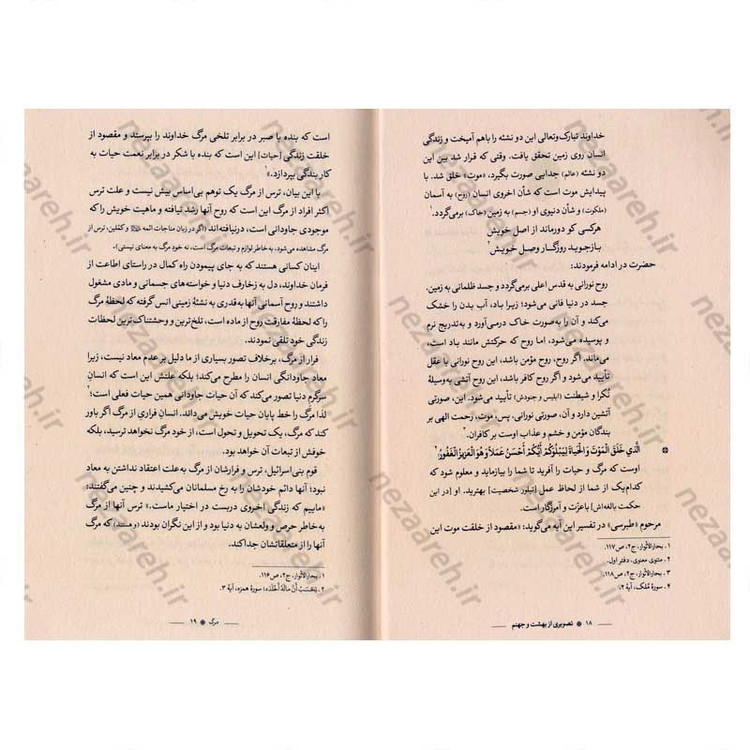 خداوند تبارک وتعالی این دو نشئه را باهم آمیخت و زندگی
انسان روی زمین تحقق یافت. وقتی که قرار شد بین این
دو نشئه (عالم) جدایی صورت بگیرد، «موت» خلق شد. با
پیدایش موت است که شأن اخروی انسان (روح) به آسمان
(ملکوت) و شأن دنیوی او (جسم) به زمین (خاک) برمی‌گردد.۱
هرکسی کو دورماند از اصل خویش
بازجوید روزگار وصل خویش۲
حضرت در ادامه فرمودند:
روح نورانی به قدس اعلی برمی‌گردد و جسد ظلمانی به زمین.
جسد در دنیا فانی می‌شود؛ زیرا باد، آب بدن را خشک
می‌کند و آن را به‌صورت خاک درمی‌آورد و به‌تدریج نرم
و پوسیده می‌شود، اما روح که حرکتش مانند باد است،
می‌ماند. اگر روح، روح مؤمن باشد، این روح نورانی با عقل
تأیید می‌شود و اگر روح کافر باشد، این روح آتشی به‌وسیلهٔ
نُکرا و شیطنت (ابلیس و جنودش) تأیید می‌شود. این، صورتی
آتشین دارد و آن، صورتی نورانی. پس، موت، رحمت الهی بر
بندگان مؤمن و خشم و عذاب اوست بر کافران.۳
الَّذِي خَلَقَ الْمَوْتَ وَالْحَيَاةَ لِيَبْلُوَكُمْ أَيُّكُمْ أَحْسَنُ عَمَلاً وَهُوَ الْعَزِيزُ الْغَفُورُ؛۴
اوست که مرگ و حیات را آفرید تا شما را بیازماید و معلوم شود که
کدام‌یک از شما از لحاظ عمل [تبلور شخصیت] بهترید. او [در این
حکمت بالغه‌اش] باعزّت و آمرزگار است.
مرحوم «طبرسی» در تفسیر این آیه می‌گوید: «مقصود از خلقت موت این
۱. بحارالأنوار، ج۶، ص۱۱۷.
۲. مثنوی معنوی، دفتر اول.
۳. بحارالأنوار، ج۶، ص۱۱۸.
۴. سورهٔ مُلک، آیهٔ ۲.
۱۸ تصویری از بهشت و جهنم
است که بنده با صبر در برابر تلخی مرگ خداوند را بپرستد و مقصود از
خلقت زندگی [حیات] این است که بنده با شکر در برابر نعمت حیات به
کار بندگی بپردازد.»
با این بیان، ترس از مرگ یک توهم بی‌اساس بیش نیست و علت ترس
اکثر افراد از مرگ این است که روح آنها رشد نیافته و ماهیت خویش را که
موجودی جاودانی است، درنیافته‌اند (اگر در زبان مناجات ائمه و کمّلین، ترس از
مرگ مشاهده می‌شود، به خاطر لوازم و تبعات مرگ است، نه خود مرگ به معنای نیستی).
اینان کسانی هستند که به جای پیمودن راه کمال در راستای اطاعت از
فرمان خداوند، دل به زخارف دنیا و خواسته‌های جسمانی و مادی مشغول
داشتند و روح آسمانی آنها به‌قدری به نشئهٔ زمینی انس گرفته که لحظهٔ مرگ
را که لحظهٔ مفارقت روح از ماده است، تلخ‌ترین و وحشتناک‌ترین لحظات
زندگی خود تلقی نمودند.
فرار از مرگ، برخلاف تصور بسیاری از ما دلیل بر عدم معاد نیست، زیرا
معاد جاودانگی انسان را مطرح می‌کند؛ بلکه علتش این است که انسانِ
سرگرمِ دنیا تصور می‌کند که آن حیات جاودانی همین حیات فعلی است؛۲
لذا مرگ را خط پایان حیات خویش می‌داند. انسانِ فراریِ از مرگ اگر باور
کند که مرگ، یک تحویل و تحول است، از خود مرگ نخواهد ترسید، بلکه
خوفش از تبعات آن خواهد بود.
قوم بنی‌اسرائیل، ترس و فرارشان از مرگ به‌علت اعتقاد نداشتن به معاد
نبود؛ آنها دائم خودشان را به رخ مسلمانان می‌کشیدند و چنین می‌گفتند:
«ماییم که زندگی اخروی دربست در اختیار ماست.» ترس آنها از مرگ
به‌خاطر حرص و ولعشان به دنیا بود و از این نگران بودند (و هستند) که مرگ
آنها را از متعلقاتشان جدا کند.
۱. بحارالأنوار، ج۶، ص۱۱۶.
۲. (يَحْسَبُ أَنَّ مَالَهُ أَخْلَدَهُ) سورهٔ همزه، آیهٔ ۳.
مرگ ۱۹
nezaareh.ir